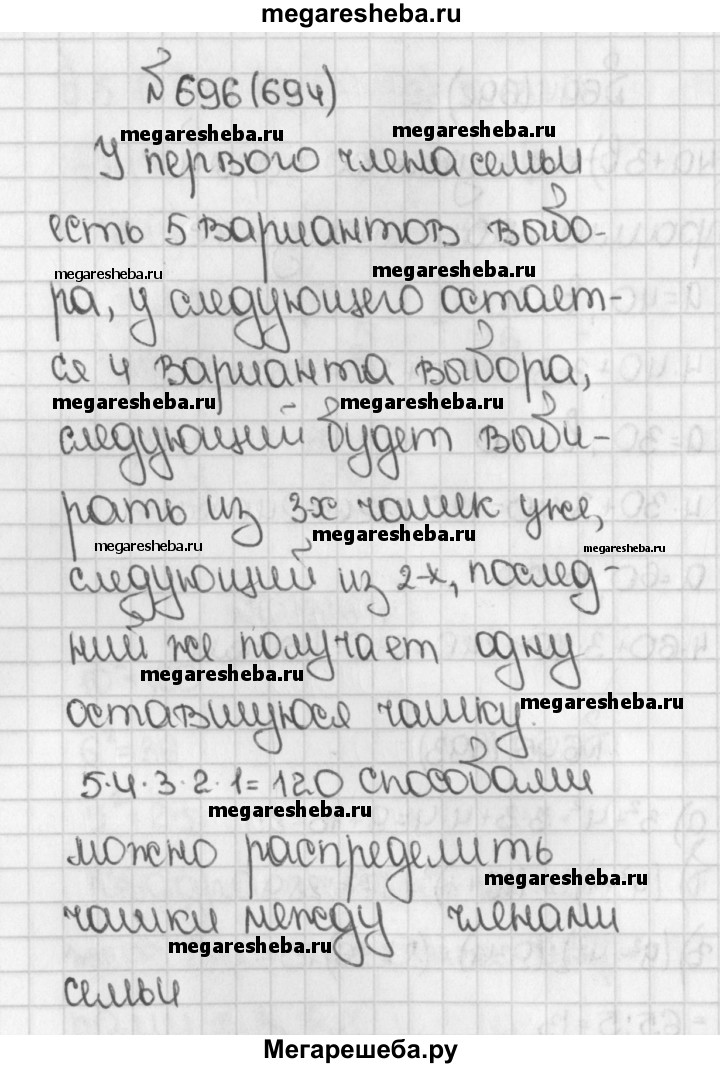 megaresheba.ru
№ 696 (694)
megaresheba.ru megaresheba.ru
У первого члена семьи
есть 5 вариантов выбо-
megaresheba.ru megaresheba.ru
ра, у следующего остает-
ся 4 варианта выбора,
megaresheba.ru megaresheba.ru
следующий будет выби-
рать из 3-х чашек уже,
megaresheba.ru megaresheba.ru megaresheba.ru
следующий из 2-х, послед-
ний же получает одну
megaresheba.ru megaresheba.ru
оставшуюся чашку.
5·4·3·2·1=120 способами
megaresheba.ru
можно распределить
megaresheba.ru
чашки между членами
megaresheba.ru
семьи
Мегарешеба.ру